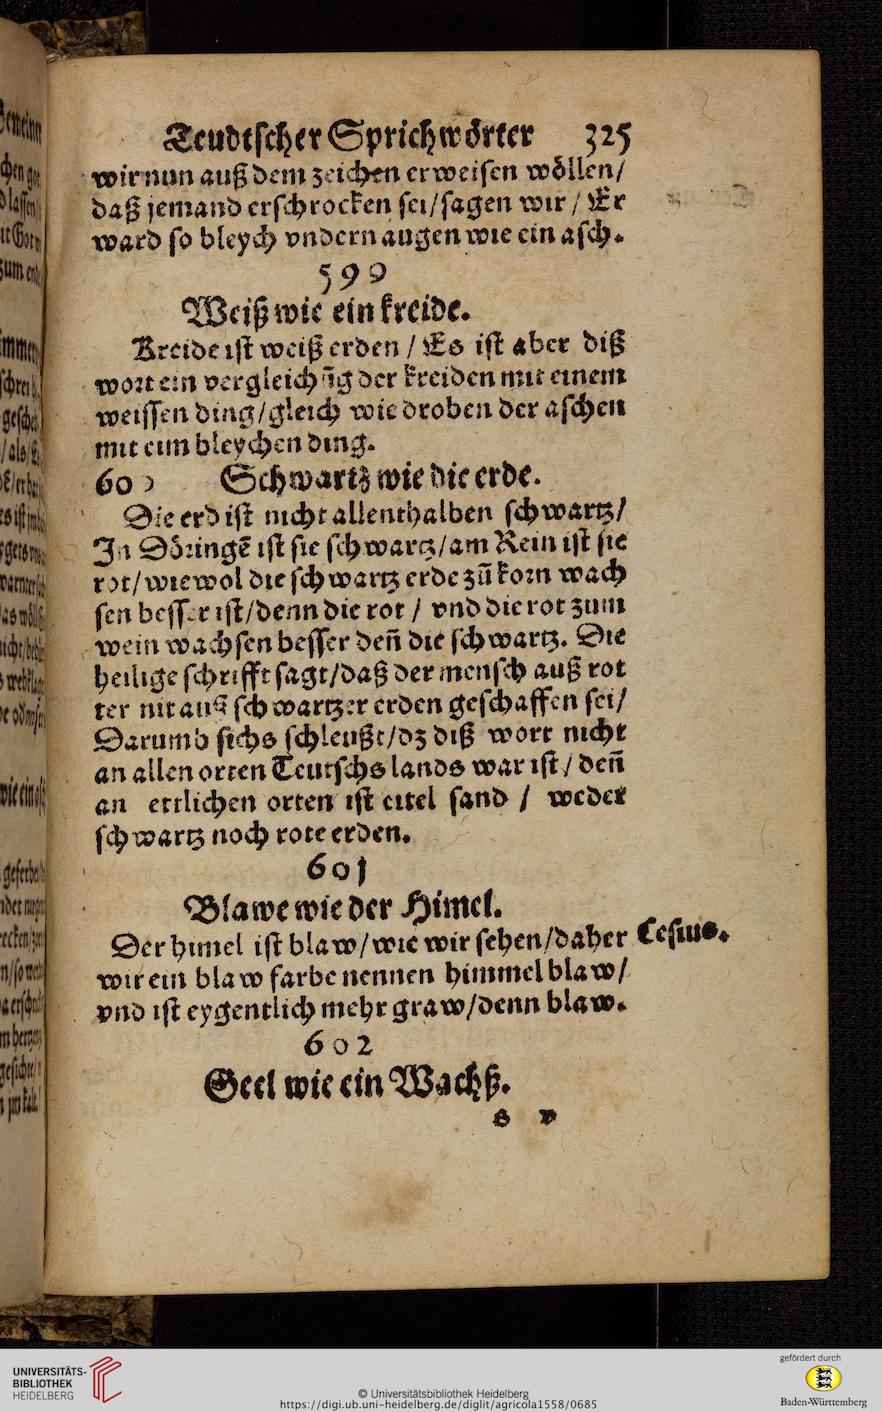 Teudtscher Sprichwörter 325
wir nun auß dem zeichen erweisen wöllen/
daß jemand erschrocken sei/sagen wir / Er
ward so bleych vndern augen wie ein asch.
599
Weiß wie ein kreide.
Kreide ist weiß erden / Es ist aber diß
wort ein vergleichũg der kreiden mit einem
weissen ding/gleich wie droben der aschen
mit eim bleychen ding.
600 Schwartz wie die erde.
Die erd ist nicht allenthalben schwartz/
In Döringẽ ist sie schwartz/am Rein ist sie
rot/wiewol die schwartz erde zů korn wach
sen besser ist/denn die rot / vnd die rot zum
wein wachsen besser deñ die schwartz. Die
heilige schrifft sagt/daß der mensch auß rot
ter nit auß schwartzer erden geschaffen sei/
Darumb sichs schleußt/dz diß wort nicht
an allen orten Teutschs lands war ist / deñ
an ettlichen orten ist eitel sand / weder
schwartz noch rote erden.
601
Blawe wie der Himel.
Der himel ist blaw/wie wir sehen/daher Cesius.
wir ein blaw farbe nennen himmelblaw/
vnd ist eygentlich mehr graw/denn blaw.
602
Geel wie ein Wachß.
s v
UNIVERSITÄTS-
BIBLIOTHEK
HEIDELBERG
© Universitätsbibliothek Heidelberg
https://digi.ub.uni-heidelberg.de/diglit/agricola1558/0685
gefördert durch
Baden-Württemberg